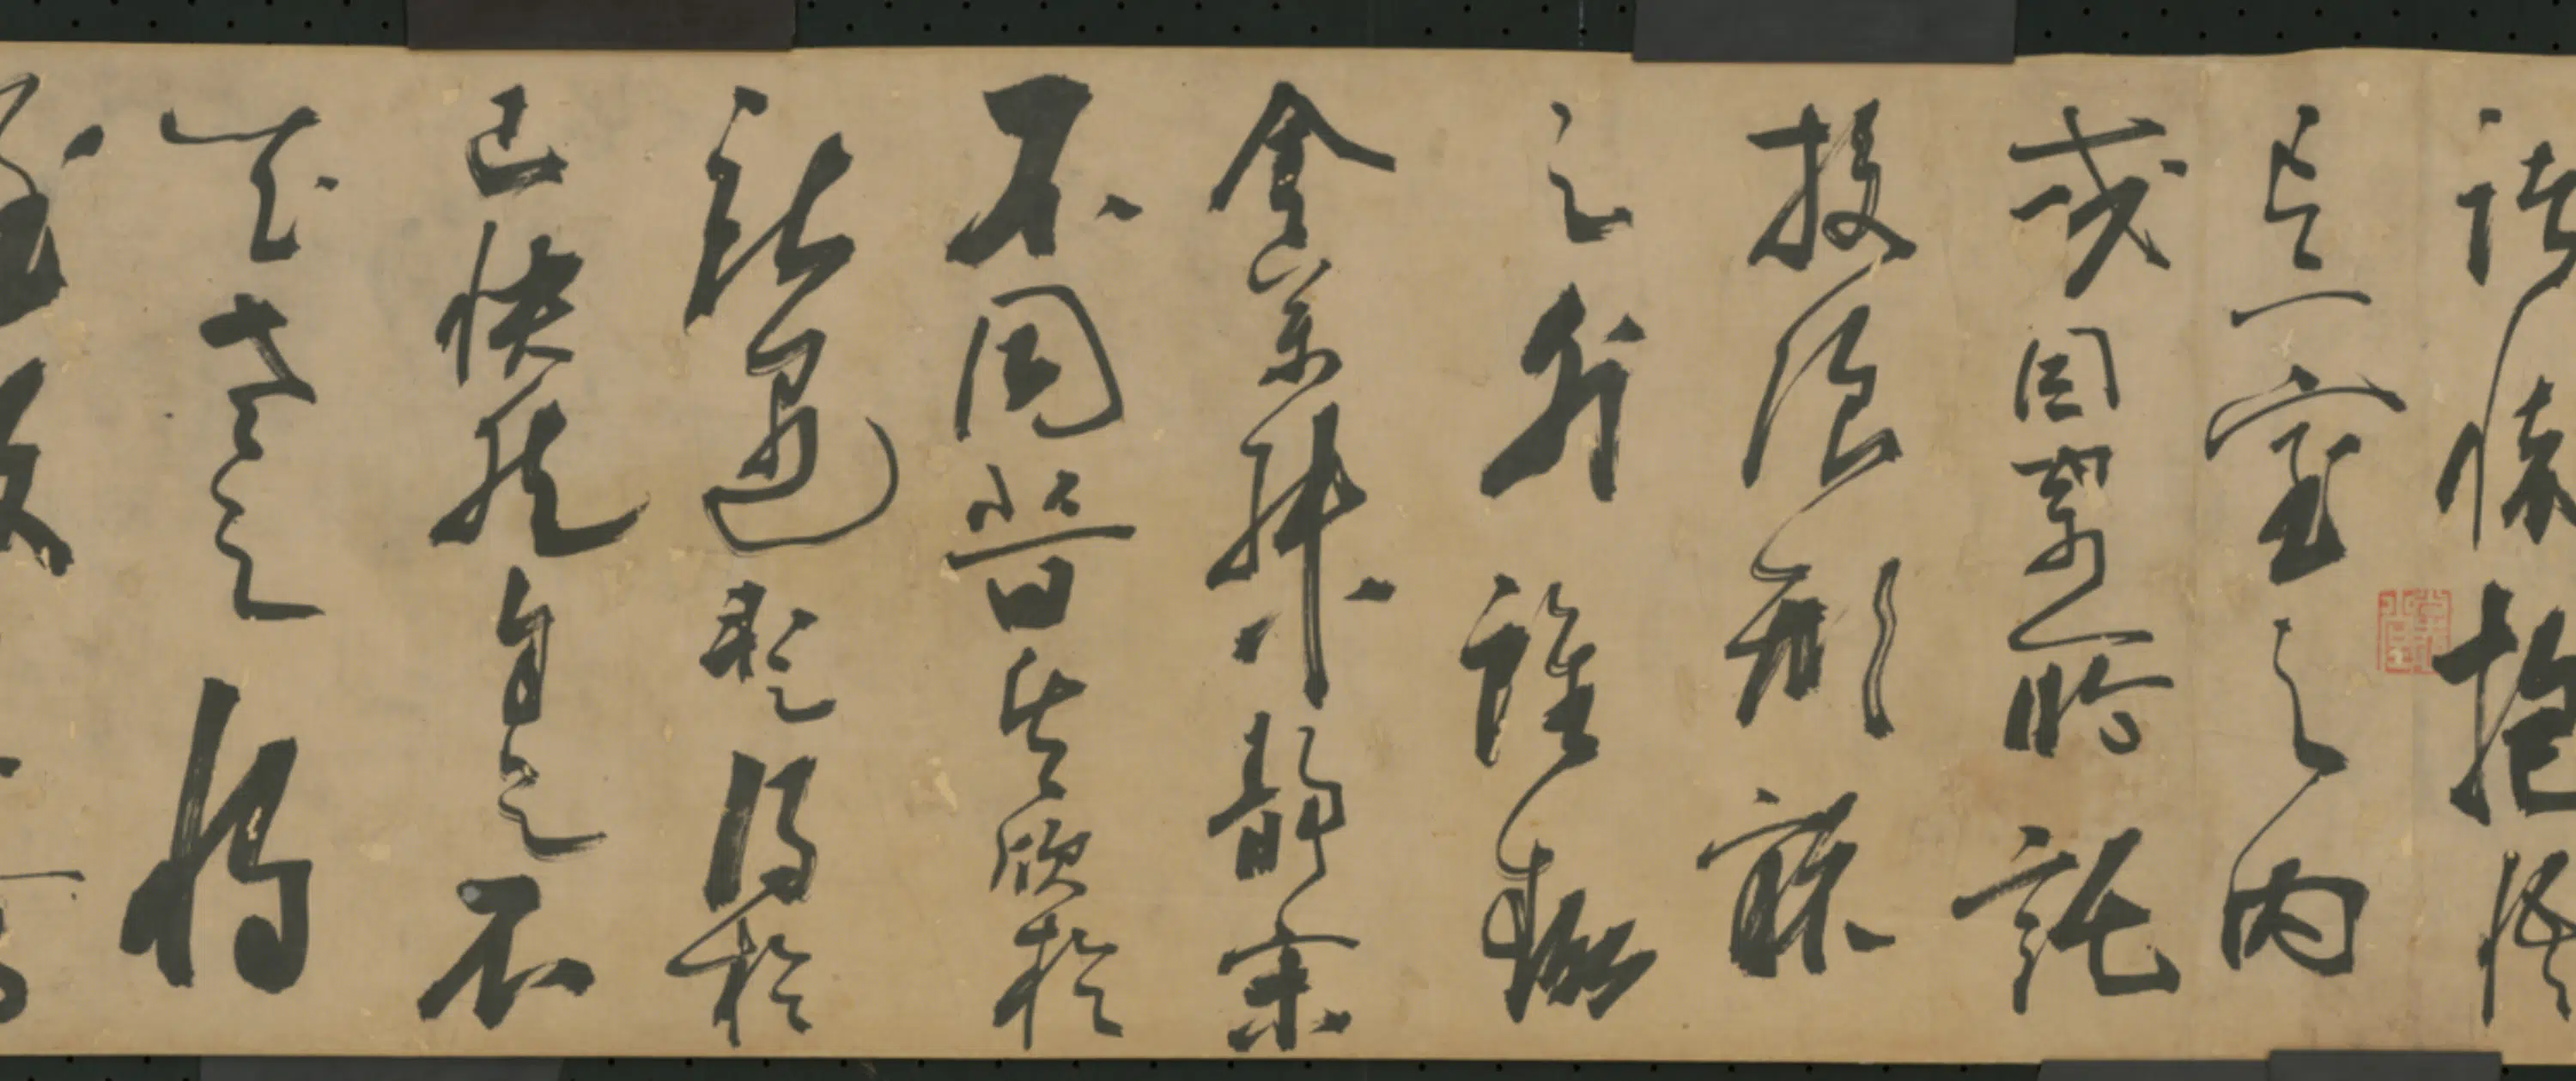 諸懷抱悟
言一室之內
或因寄所託
放浪形骸
之外雖趣
舍萬殊靜躁
不同當其欣於
所遇蹔得於
己快然自足不
知老之將
至及